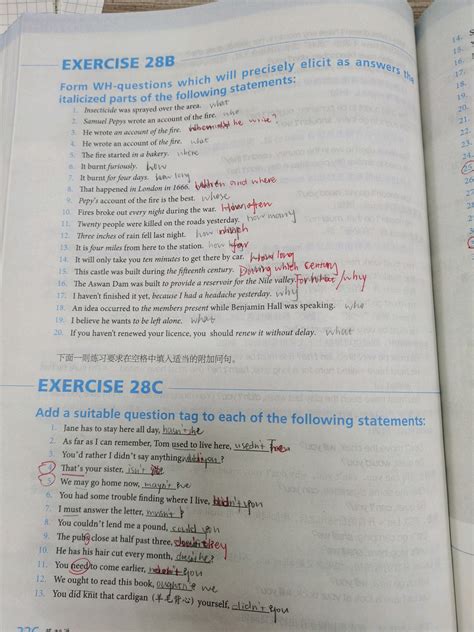 EXERCISE 28B
Form WH-questions which will precisely elicit as answers the
italicized parts of the following statements:
1. Insecticide was sprayed over the area. what
2. Samuel Pepys wrote an account of the fire. who
3. He wrote an account of the fire. he write?
4. He wrote an account of the fire. what
5. The fire started in a bakery. where
6. It burnt furiously. how
7. It burnt for four days. how long
8. That happened in London in 1666. When and where
9. Pepy's account of the fire is the best. whose
10. Fires broke out every night during the war. How often
11. Twenty people were killed on the roads yesterday. how many
12. Three inches of rain fell last night. how much
13. It is four miles from here to the station. how far
14. It will only take you ten minutes to get there by car. How long
15. This castle was built during the fifteenth century. During which century
16. The Aswan Dam was built to provide a reservoir for the Nile valley. For what / why
17. I haven't finished it yet, because I had a headache yesterday. why
18. An idea occurred to the members present while Benjamin Hall was speaking. who
19. I believe he wants to be left alone. what
20. If you haven't renewed your licence, you should renew it without delay. what
下面一则练习要求在空格中填入适当的附加问句。
EXERCISE 28C
Add a suitable question tag to each of the following statements:
1. Jane has to stay here all day, hasn't she
2. As far as I can remember, Tom used to live here, usedn't
3. You'd rather I didn't say anything, you
4. That's your sister, isn't
5. We may go home now, mayn't we
6. You had some trouble finding where I live, didn't you
7. I must answer the letter, mustn't I
8. You couldn't lend me a pound, could you
9. The pubs close at half past three, they
10. He has his hair cut every month, doesn't he
11. You need to come earlier, don't you
12. We ought to read this book, oughtn't we
13. You did knit that cardigan (羊毛背心) yourself, didn't you